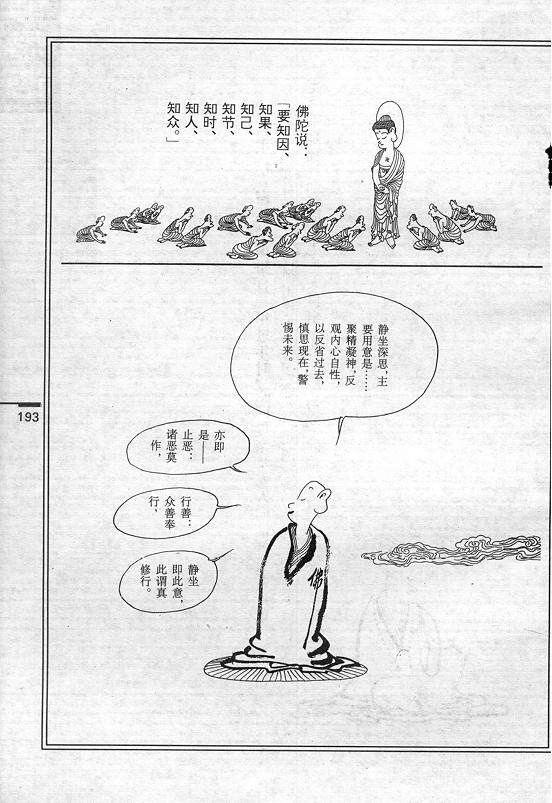 佛陀说：
「要知因、
知果、
知己、
知节、
知时、
知人、
知众。」
静坐深思，主
要用意是……
聚精凝神，反
观内心自性，
以反省过去，
慎思现在，警
惕未来。
亦即
是——
止恶：
诸恶莫
作，
行善：
众善奉
行，
静坐
即此意，
此谓真
修行。
佛
193